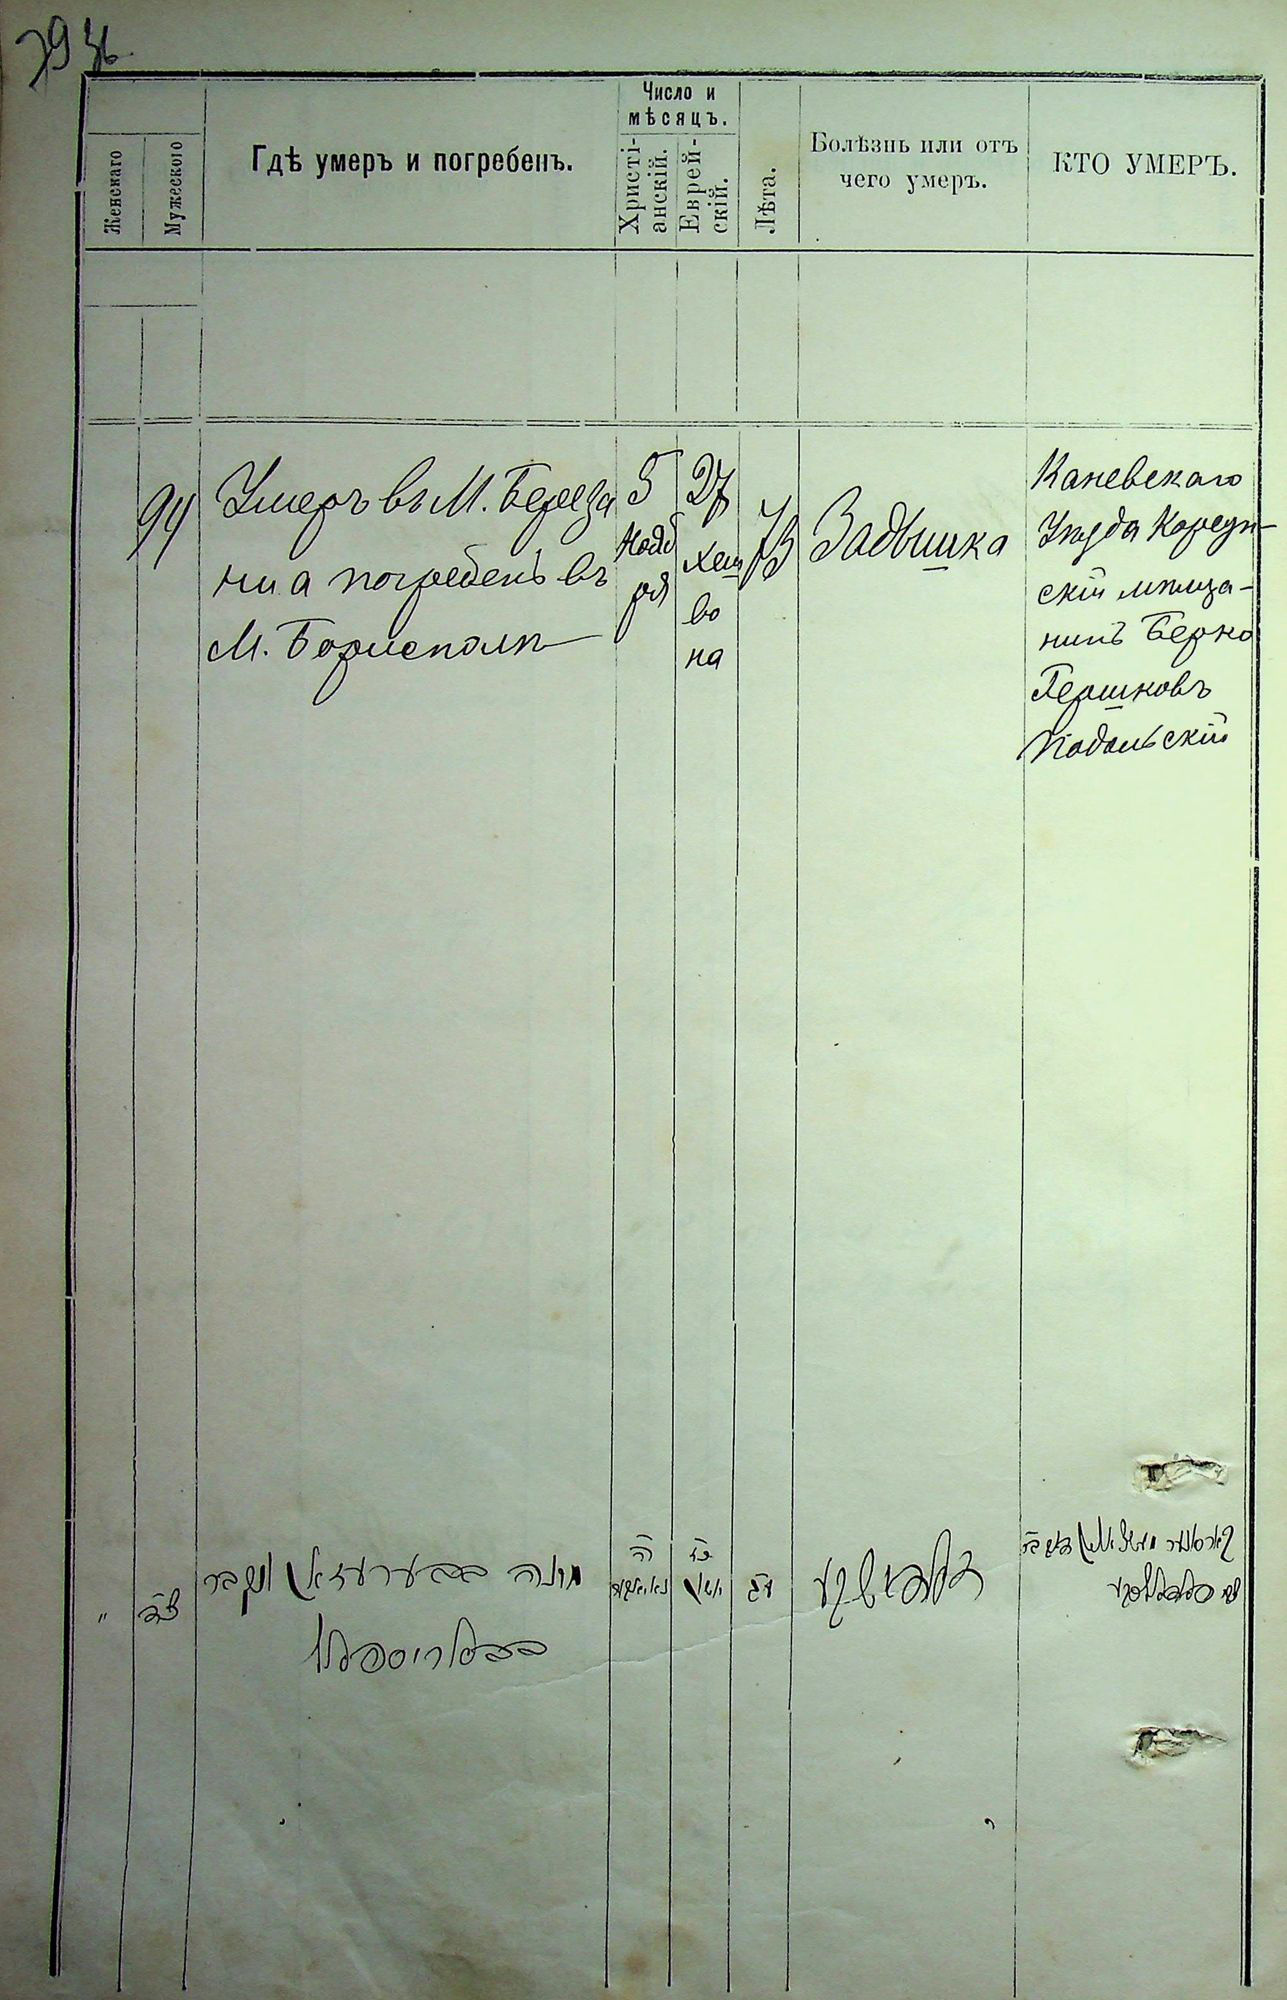 Женскаго
Мужескаго
Гдѣ умеръ и погребенъ.
Число и
мѣсяцъ.
Христі-
анскій.
Еврей-
скій.
Лѣта.
Болѣзнь или отъ
чего умеръ.
КТО УМЕРЪ.
94
Умеръ въ М. Береза
ни а погребенъ въ
М. Борисполѣ
5
Нояб
ря
27
Хеш
во
на
73
Задышка
Каневскаго
Уѣзда Корсун-
скій мѣща-
нинъ Берко
Гершковъ
Подольскій
"
צד
מונה בבערעזאן ונקבר
ה
כז
חשון
עג